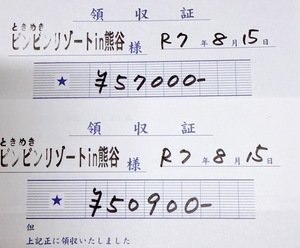 領収証
ときめき
ピンピンリゾートin熊谷 様 R7年8月15日
★ ¥57000-
領収証
ときめき
ピンピンリゾートin熊谷 様 R7年8月15日
★ ¥50900-
但
上記正に領収いたしました